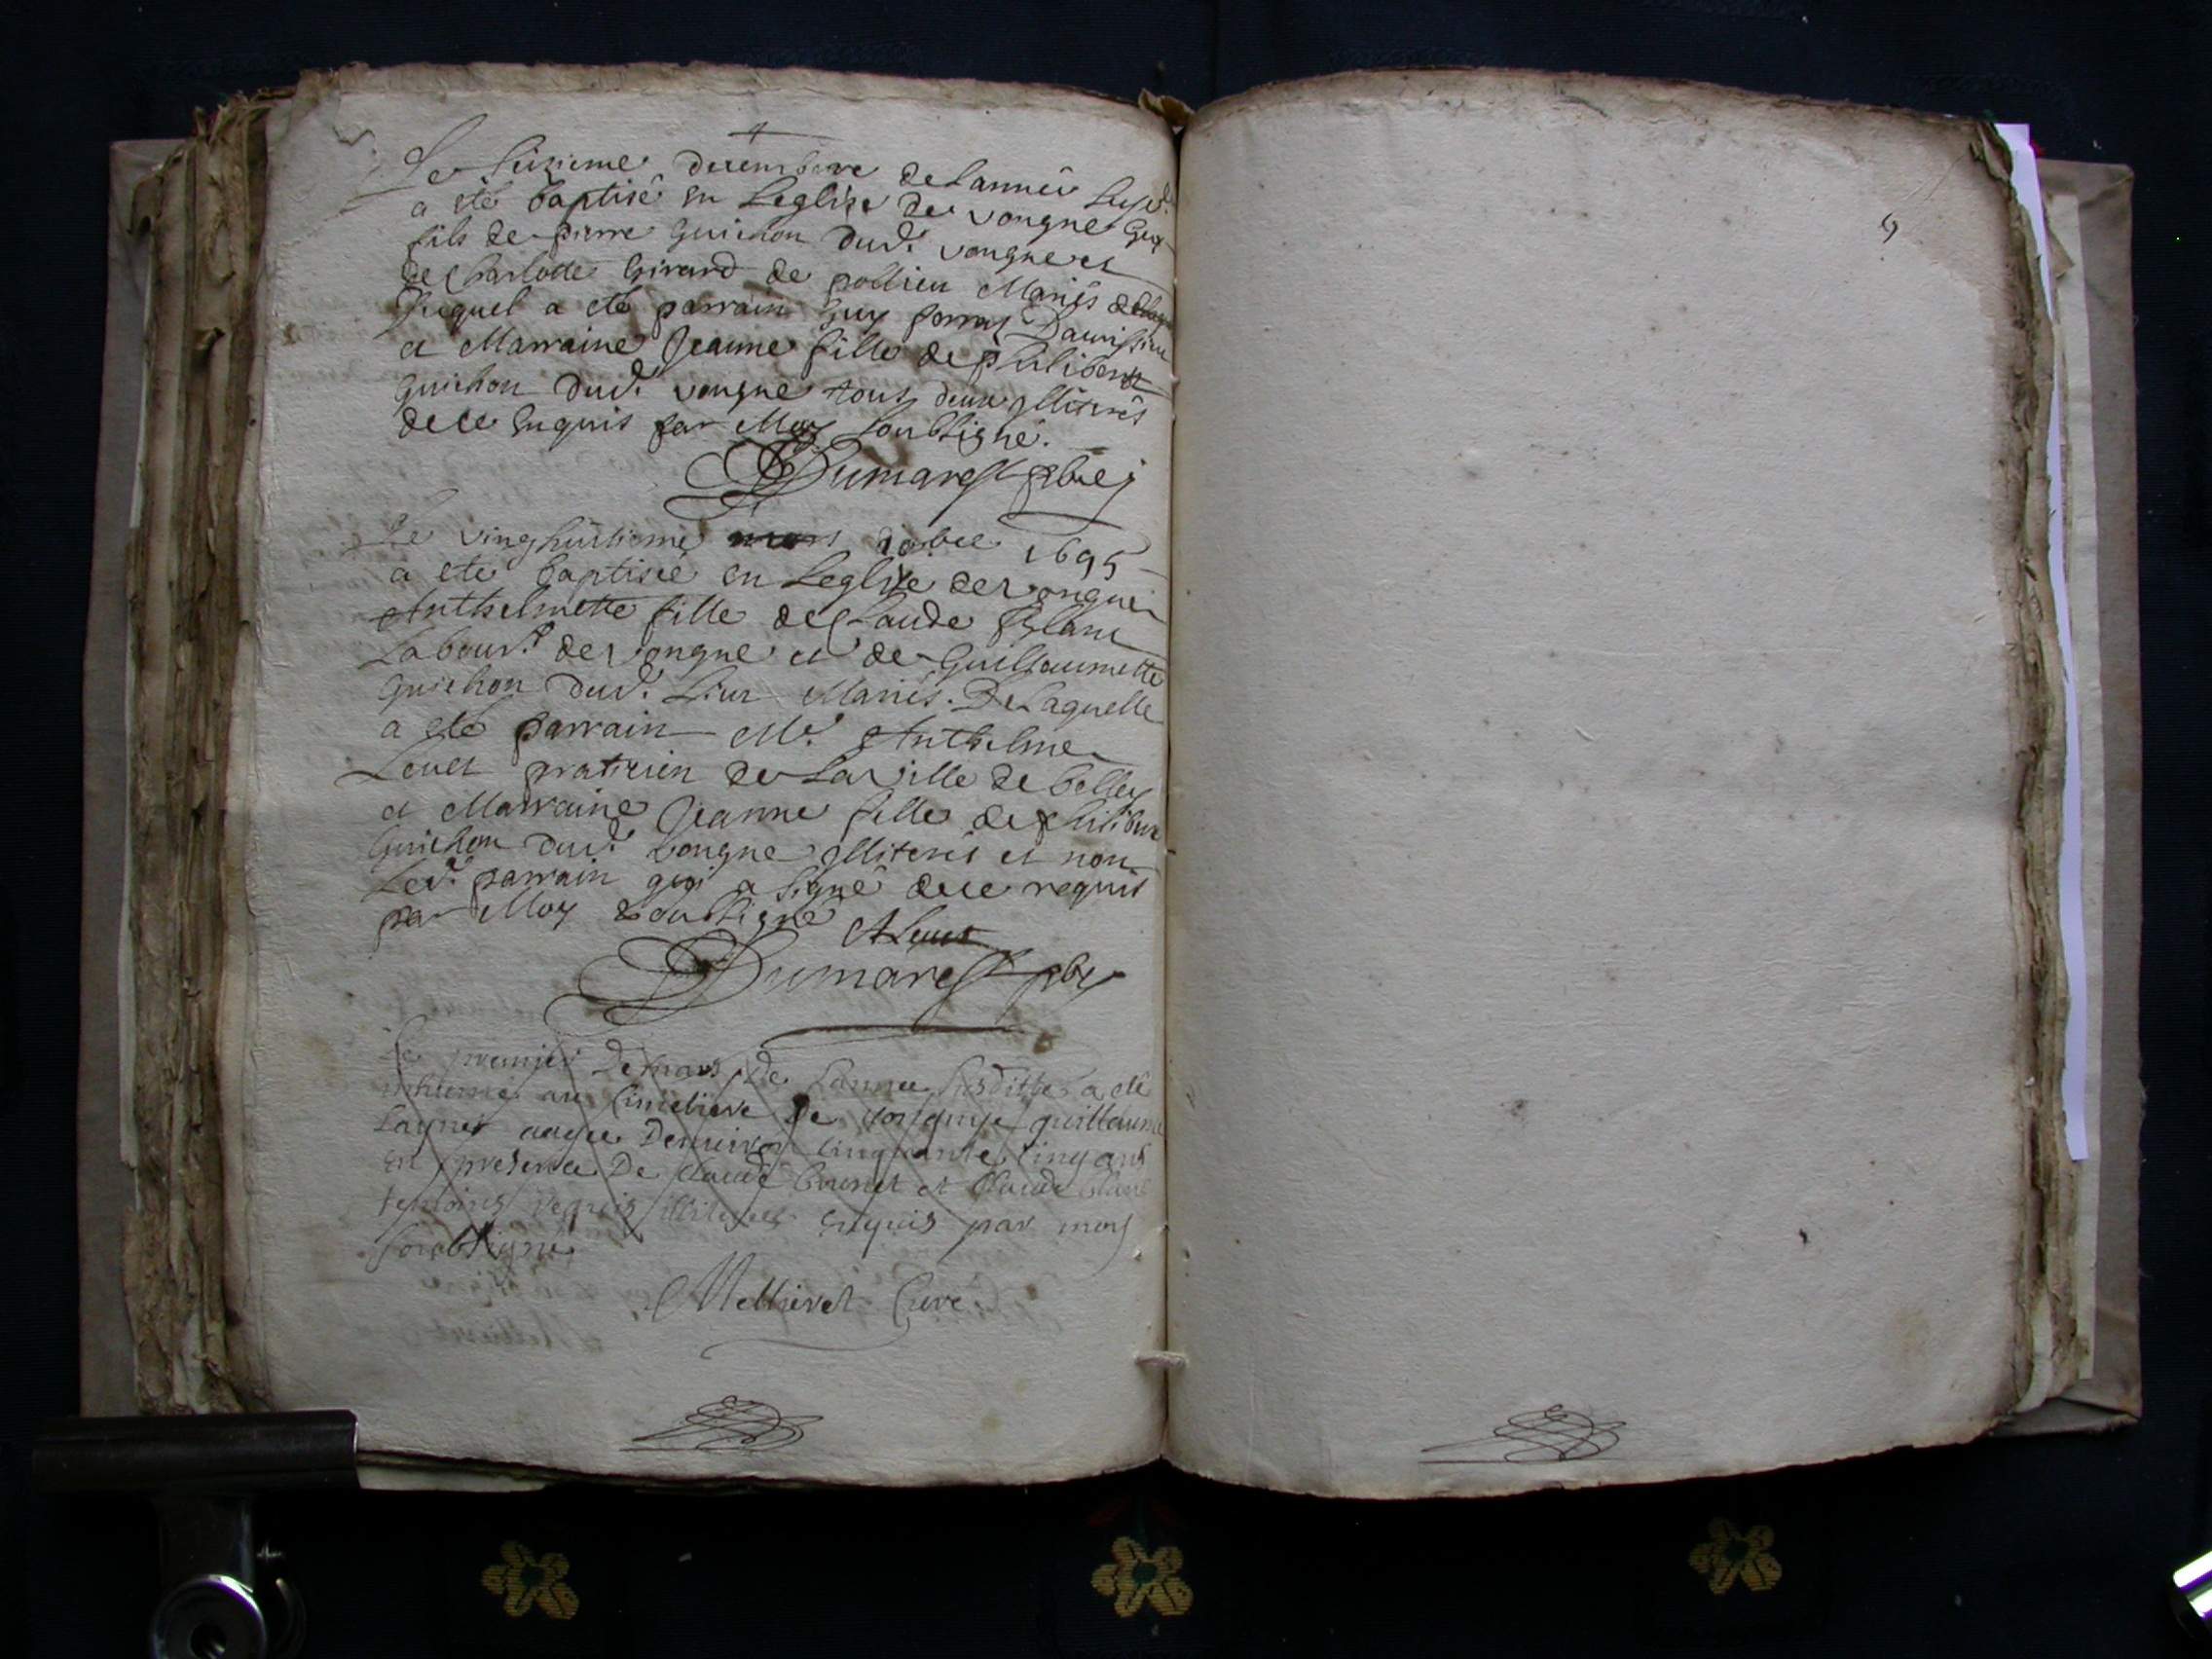 Le sixieme decembre de lannée susd.
a eté baptisé en Leglise de vongne Guy
fils de pierre Guichon dud. vongne et
de Charlotte Girard de pollieu Mariés
duquel a eté parrain Guy
et Marraine Jeanne fille de philibert
Guichon dud. vongne tous deux Illiterés
de ce Enquis par Moy soubsigné.
Dumarest pbre
Le vinghuitieme xobre 1695
a eté baptisée en Leglise de vongne
Anthelmette fille de Claude Blanc
Labour. de vongne et de Guillaumette
Guichon dud. Lieu Mariés. De Laquelle
a eté parrain Me. Anthelme
Leuet praticien de La ville de belley
et Marraine Jeanne fille de philiber
Guichon dud. vongne Illiterés et non
Led. parrain qui a signé de ce requis
par Moy soubsigné
A Leuet
Dumarest pbre
Le premier De mars De Lannee susditte a eté
inhumé au Cimetiere De vongne guillaume
aagee Denviron cinquante cinq ans
en presence De Claude et Claude blanc
temoins requis illiterees enquis par moy
soubsigné
Mellieret Curé